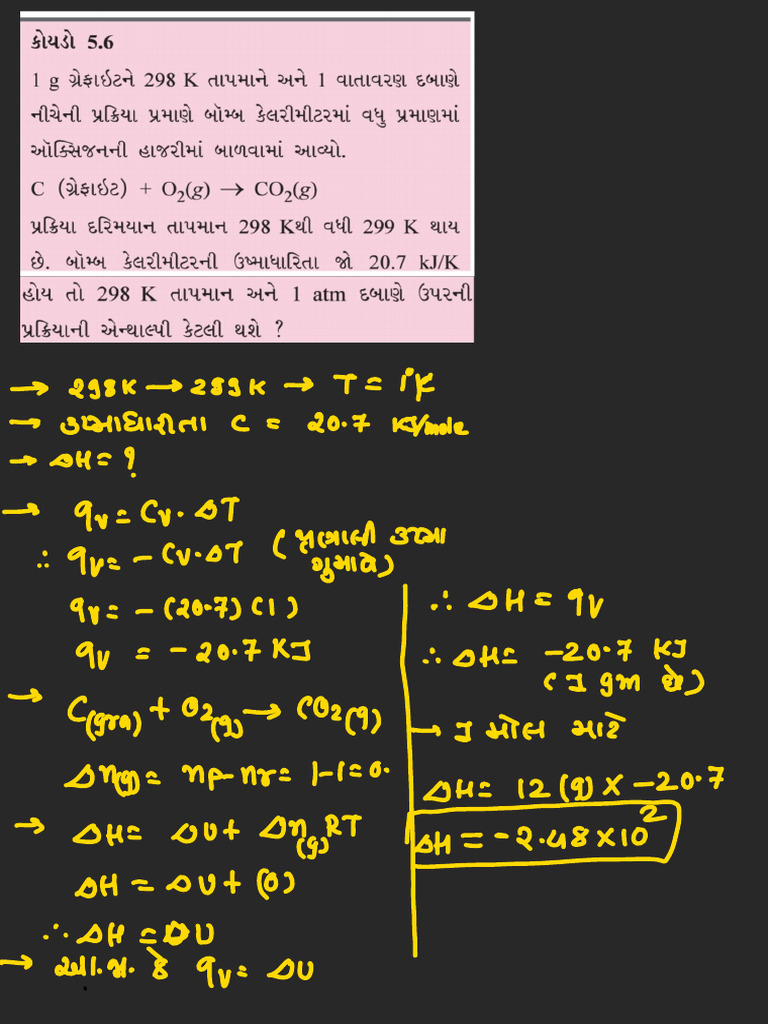 કોયડો 5.6
1 g ગ્રેફાઇટને 298 K તાપમાને અને 1 વાતાવરણ દબાણે
નીચેની પ્રક્રિયા પ્રમાણે બૉમ્બ કેલરીમીટરમાં વધુ પ્રમાણમાં
ઑક્સિજનની હાજરીમાં બાળવામાં આવ્યો.
C (ગ્રેફાઇટ) + O₂(g) → CO₂(g)
પ્રક્રિયા દરિમયાન તાપમાન 298 Kથી વધી 299 K થાય
છે. બૉમ્બ કેલરીમીટરની ઉષ્માધારિતા જો 20.7 kJ/K
હોય તો 298 K તાપમાન અને 1 atm દબાણે ઉપરની
પ્રક્રિયાની એન્થાલ્પી કેટલી થશે ?
→ 298K → 289K → T = 1K
→ ઉષ્માધારીતા C = 20.7 KJ/mole
→ ΔH = ?
→ qv = Cv · ΔT
∴ qv = – Cv · ΔT (પ્રણાલી ઉષ્મા
ગુમાવે)
qv = – (20.7) (1)
qv = – 20.7 KJ
→ C(gra) + O2(g) → CO2(g)
Δn(g) = np – nr = 1–1 = 0.
→ ΔH = ΔU + Δn(g)RT
ΔH = ΔU + (0)
∴ ΔH = ΔU
→ આ.જા. કે qv = ΔU
∴ ΔH = qv
∴ ΔH = –20.7 KJ
(1 gm છે)
→ 1 મોલ માટે
ΔH = 12 (g) × –20.7
ΔH = –2.48 × 10²